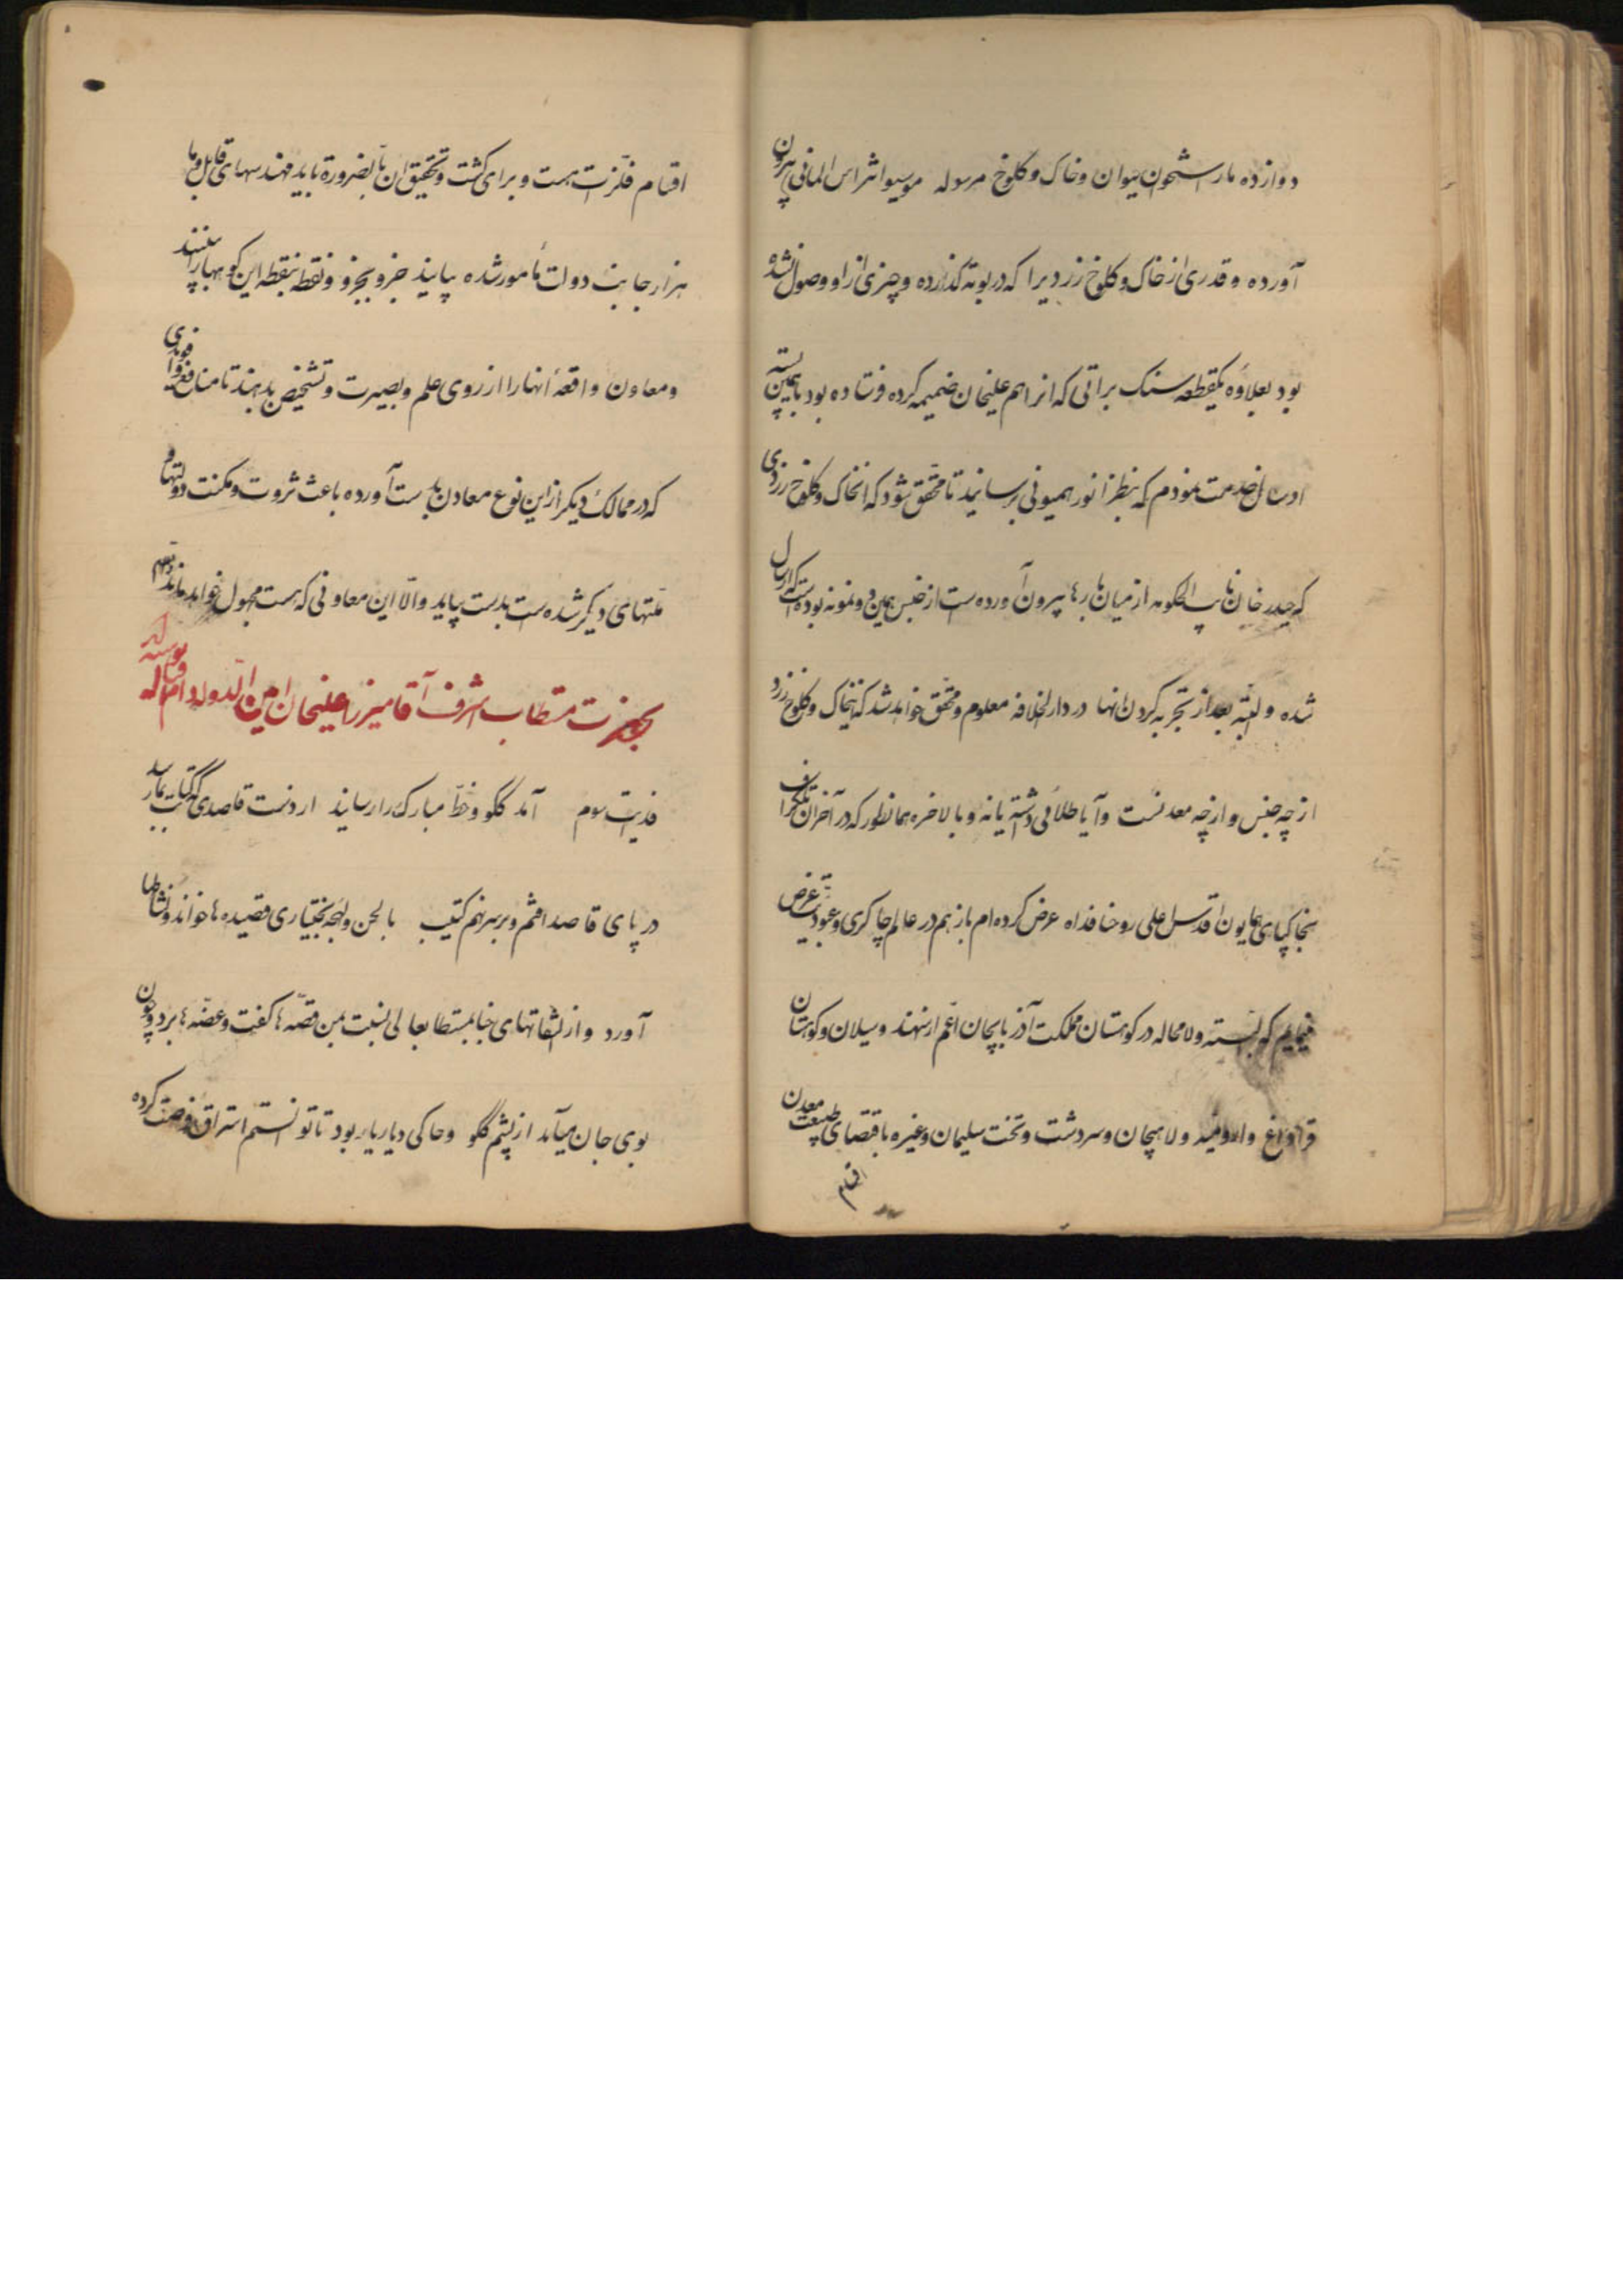 دوازده مارس شخون سوان و خاک و کلوخ مرسوله موسیو اثراس المانی بیرون
آورده و قدری از خاک و کلوخ زرد یرا که در بوته گذارده و چیزی از او وصول نشده
بود بعلاوه یکقطعه سنک براتی که از اهم علیخان ضمیمه کرده فرستاده بود با همین بسته
ارسال خدمت نمودم که بنظر انور همیونی برسانید تا محقق شود که انخاک و کلوخ زردی
که حیدر خان نایب الحکومه از میان بارها بیرون آورده است از جنس همین دو نمونه بوده است که ارسال
شده و البته بعد از تجربه کردن انها در دارالخلافه معلوم و محقق خواهد شد که اینخاک و کلوخ زرد
از چه جنس و از چه معدنست و آیا طلائی داشته یا نه و بالاخره همانطور که در آخر ان تلکراف
بخاکپای همایون اقدس اعلی روحنا فداه عرض کرده ام باز هم در عالم چاکری و عبودیت عرض
مینمایم که البته و لامحاله در کوهستان مملکت آذربایجان اعم از سهند و سبلان و کوهستان
قراداغ و ارومیه و لاهیجان و سردشت و تخت سلیمان و غیره باقتضای طبیعت معدن
اقسام
اقسام فلزات هست و برای کشف و تحقیق ان بالضروره باید مهندسهای قابل و با
هزار جانب دولت مامور شده بیایند جزو بجزو و نقطه بنقطه این کوهها را ببینند
و معاون واقعهٔ انها را از روی علم و بصیرت و تشخیص بدهند تا منافع و فوائدی
که در ممالک دیکر از این نوع معادن بدست آورده باعث ثروت و مکنت دولتها و
ملتهای دیکر شده است بدست بیاید والا این معاونی که هست مجهول خواهد ماند
بحضرت مستطاب اشرف آقا میرزا علیخان امین الدوله دام اقباله نوشته شد
فدایت شوم آمد گلو و خط مبارک را رسانید اردنت قاصدی که کتابت بیارد
در پای قاصد افتم و بر سر نهم کتیب با لحن و لهجه بختیاری قصیده ها خواند و نشاطها
آورد و از التفاتهای جنابمستطابعالی نسبت بمن قصه ها کفت و غصه ها برد و چون
بوی جان میآید از پشم گلو و حاکی دیار یار بود تا توانستم استراق فرصت کرده